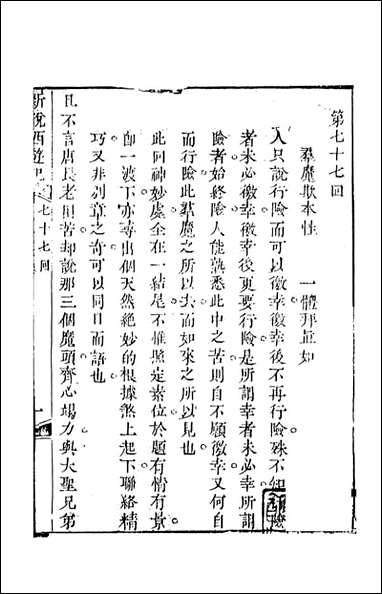 第七十七回
羣魔欺本性　一體拜眞如
人只說行險而可以徼幸徼幸後不再行險殊不知行險
者未必徼幸徼幸後更要行險是所謂幸者未必幸所謂
險者始終險人能熟悉此中之苦則自不願徼幸又何自
而行險此羣魔之所以去而如來之所以見也
此回神妙處全在一結是不惟監定素位於題有情有景
卽一波下亦尋出個天然絶妙的根據煞上起下聯絡精
巧又非別章之奇可以同日而語也
且不言唐長老困苦却說那三個魔頭齊心竭力與大聖兄弟
新說西遊記
七十七回
一